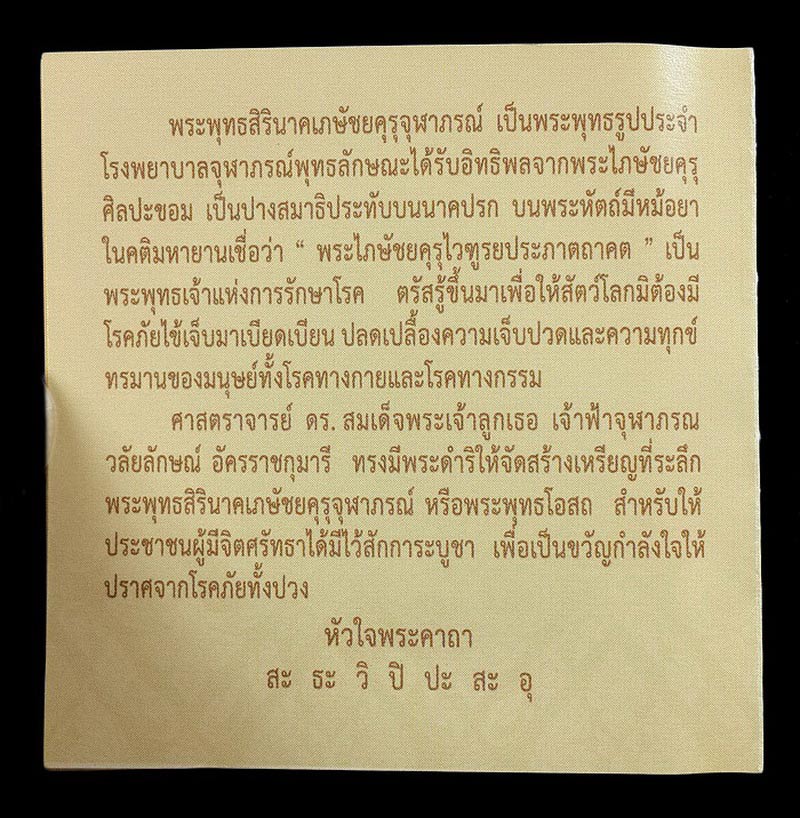 พระพุทธสิรินาคเภษัชยคุรุจุฬาภรณ์ เป็นพระพุทธรูปประจำ
โรงพยาบาลจุฬาภรณ์พุทธลักษณะได้รับอิทธิพลจากพระไภษัชยคุรุ
ศิลปะขอม เป็นปางสมาธิประทับบนนาคปรก บนพระหัตถ์มีหม้อยา
ในคติมหายานเชื่อว่า “ พระไภษัชยคุรุไวฑูรยประภาตถาคต ” เป็น
พระพุทธเจ้าแห่งการรักษาโรค ตรัสรู้ขึ้นมาเพื่อให้สัตว์โลกมิต้องมี
โรคภัยไข้เจ็บมาเบียดเบียน ปลดเปลื้องความเจ็บปวดและความทุกข์
ทรมานของมนุษย์ทั้งโรคทางกายและโรคทางกรรม
ศาสตราจารย์ ดร. สมเด็จพระเจ้าลูกเธอ เจ้าฟ้าจุฬาภรณ
วลัยลักษณ์ อัครราชกุมารี ทรงมีพระดำริให้จัดสร้างเหรียญที่ระลึก
พระพุทธสิรินาคเภษัชยคุรุจุฬาภรณ์ หรือพระพุทธโอสถ สำหรับให้
ประชาชนผู้มีจิตศรัทธาได้มีไว้สักการะบูชา เพื่อเป็นขวัญกำลังใจให้
ปราศจากโรคภัยทั้งปวง
หัวใจพระคาถา
สะ ธะ วิ ปิ ปะ สะ อุ